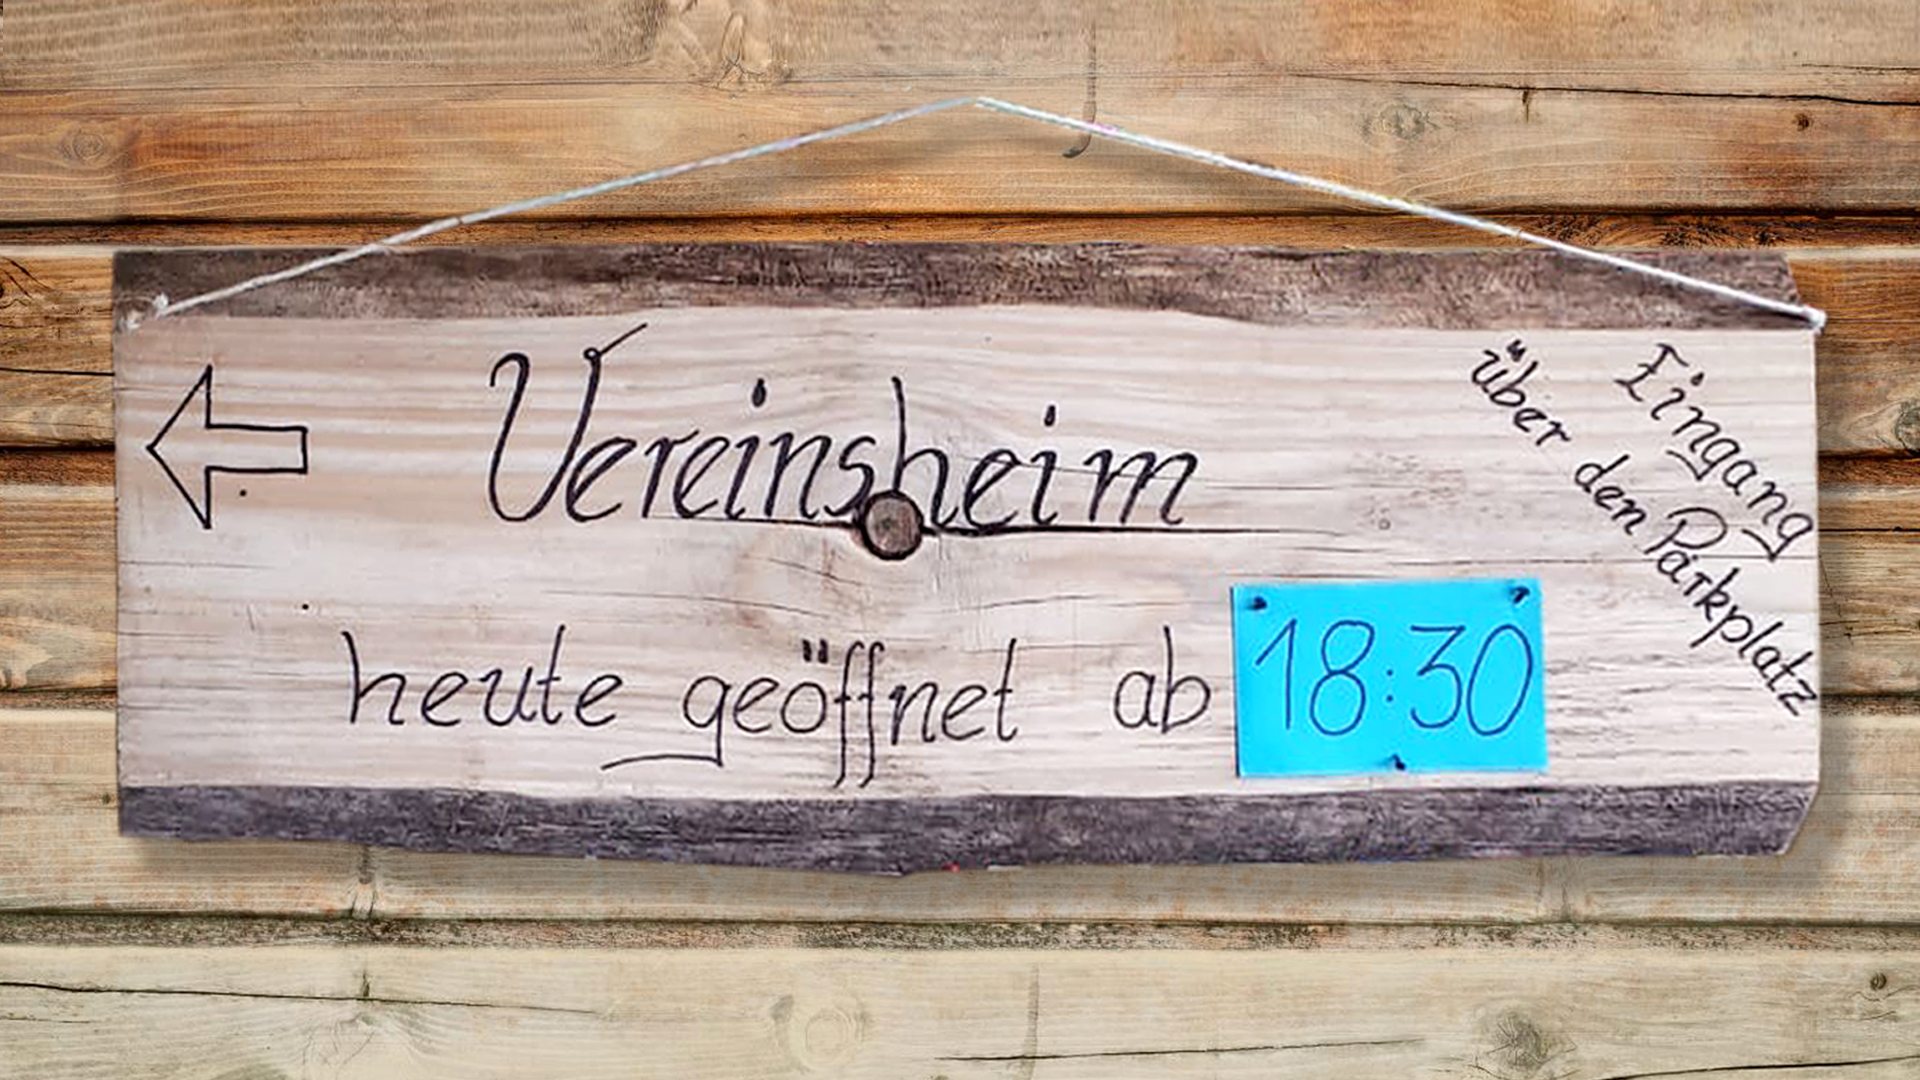 Vereinsheim
heute geöffnet ab 18:30
Eingang
über den Parkplatz